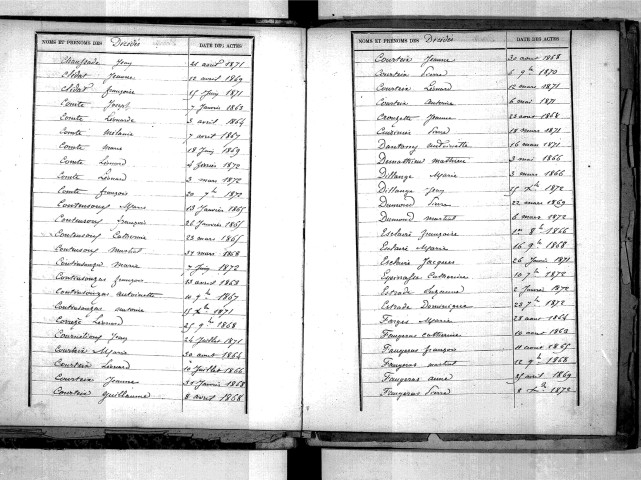 NOMS ET PRÉNOMS DES Décédés DATE DES ACTES
Chauffade Jean 21 avril 1871
Chidat Jeanne 12 avril 1869
Chidat françoise 25 Juin 1871
Comte Joseph 7 Janvier 1863
Comte Léonarde 3 avril 1864
Comte Mélanie 7 avril 1867
Comte Marie 18 Juin 1869
Comte Léonard 4 février 1872
Comte Léonard 2 mars 1872
Comte françois 20 7bre 1872
Contensouz Marie 13 Janvier 1865
Contensouz françois 26 Janvier 1865
Contensouz Catherine 23 mars 1865
Contensouz Martial 31 mars 1868
Marie Juin 1872
Contensouzas françois 13 avril 1868
Contensouzas antoinette 11 9bre 1867
Contensouzas antoine 15 Xbre 1871
Corrèze Léonard 25 9bre 1868
Jean 24 Juillet 1871
Courteix Marie 30 août 1864
Courteix Léonard 10 Juillet 1866
Courteix Jeanne 31 Janvier 1868
Courteix Guillaume 8 avril 1868
NOMS ET PRÉNOMS DES Décédés DATE DES ACTES
Courteix Jeanne 30 août 1868
Courteix Pierre 6 9bre 1870
Courteix Léonard 12 mars 1871
Courteix Antoine 6 mai 1871
Crouzette Jeanne 23 août 1868
Pierre 18 mars 1871
antoinette 16 mars 1871
Demathieu mathieu 3 mai 1866
Dillange Marie 3 mars 1866
Dillange Jean 25 Xbre 1872
Dumond Pierre 22 mars 1869
Dumond martial 6 mars 1872
Esclaire françoise 1er 8bre 1866
Marie 16 9bre 1868
Esclaire Jacques 26 Janvier 1871
Espinasse Catherine 10 7bre 1872
Estrade Suzanne 2 Janvier 1872
Estrade Dominique 23 7bre 1872
Farges Marie 28 août 1864
Faugeras catherine 10 août 1863
Faugeras françois 11 août 1865
Faugeras martial 12 9bre 1868
Faugeras anne 25 avril 1869
Faugeras Pierre 8 Xbre 1872